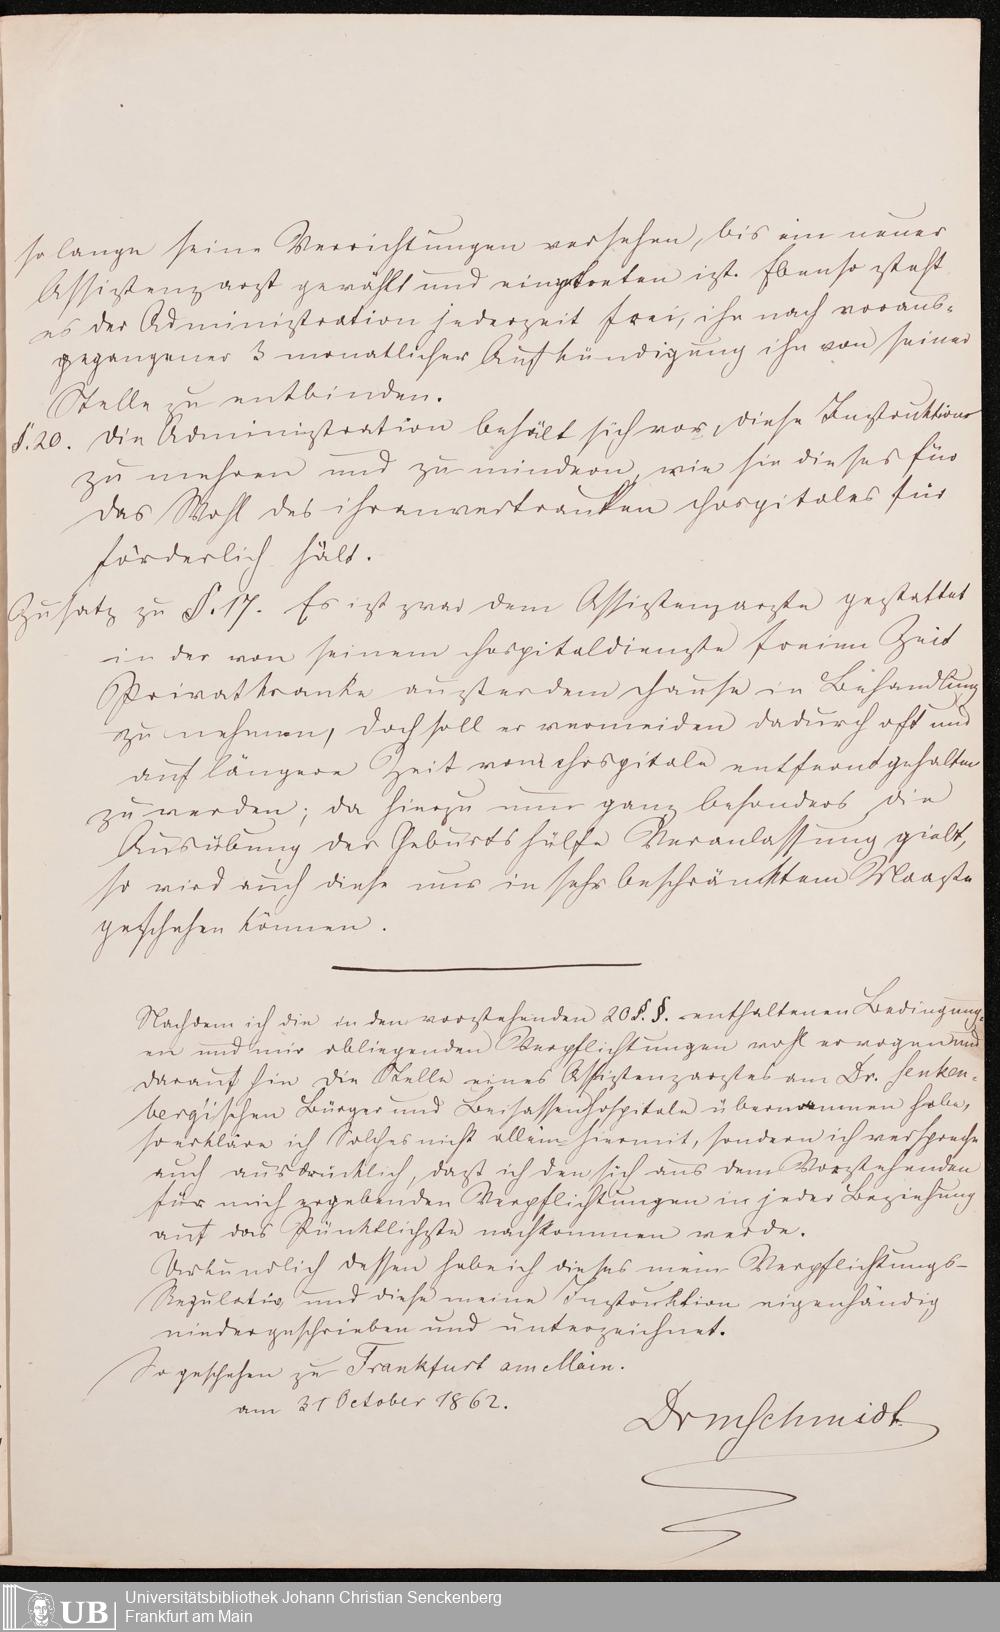 so lange seine Verrichtungen versehen, bis ein neuer
Assistenzarzt gewählt und eingetreten ist. Ebenso steht
es der Administration jederzeit frei, ihn nach voraus-
gegangener 3 monatlicher Aufkündigung ihn von seiner
Stelle zu entbinden.
§. 20. Die Administration behält sich vor, diese Instruktion
zu mehren und zu mindern, wie sie dieses für
das Wohl des ihr anvertrauten Hospitales für
förderlich hält.
Zusatz zu §. 17. Es ist zwar dem Assistenzarzte gestattet
in der von seinem Hospitaldienste freien Zeit
Privatkranke ausser dem Hause in Behandlung
zu nehmen, doch soll er vermeiden dadurch oft und
auf längere Zeit vom Hospitale entfernt gehalten
zu werden; da hierzu nun ganz besonders die
Ausübung der Geburtshülfe Veranlassung giebt,
so wird auch diese nur in sehr beschränktem Maasse
geschehen können.
Nachdem ich die in den vorstehenden 20 §.§. enthaltenen Bedingung-
en und mir obliegenden Verpflichtungen wohl erwogen und
darauf hin die Stelle eines Assistenzarztes am Dr. Senken-
berg'ischen Bürger und Beisassenhospitale übernommen habe,
so erkläre ich Solches nicht allein hiermit, sondern ich verspreche
auch ausdrücklich, dass ich den sich aus dem Vorstehenden
für mich ergebenden Verpflichtungen in jeder Beziehung
auf das Pünktlichste nachkommen werde.
Urkundlich dessen habe ich dieses mein Verpflichtungs-
Regulativ und diese meine Instruktion eigenhändig
niedergeschrieben und unterzeichnet.
So geschehen zu Frankfurt am Main.
am 31 October 1862.
Dr m Schmidt.
UB Universitätsbibliothek Johann Christian Senckenberg
Frankfurt am Main